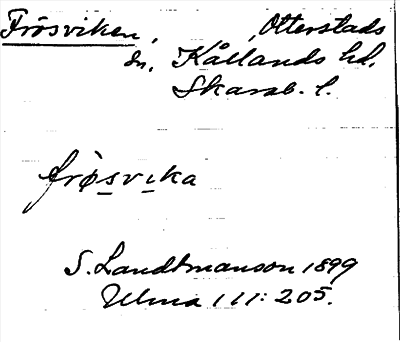 Frösviken, Otterstads
sn, Kållands hd.
Skarab. l.
frø̀svika
S. Landtmanson 1899
Ulma 111: 205.